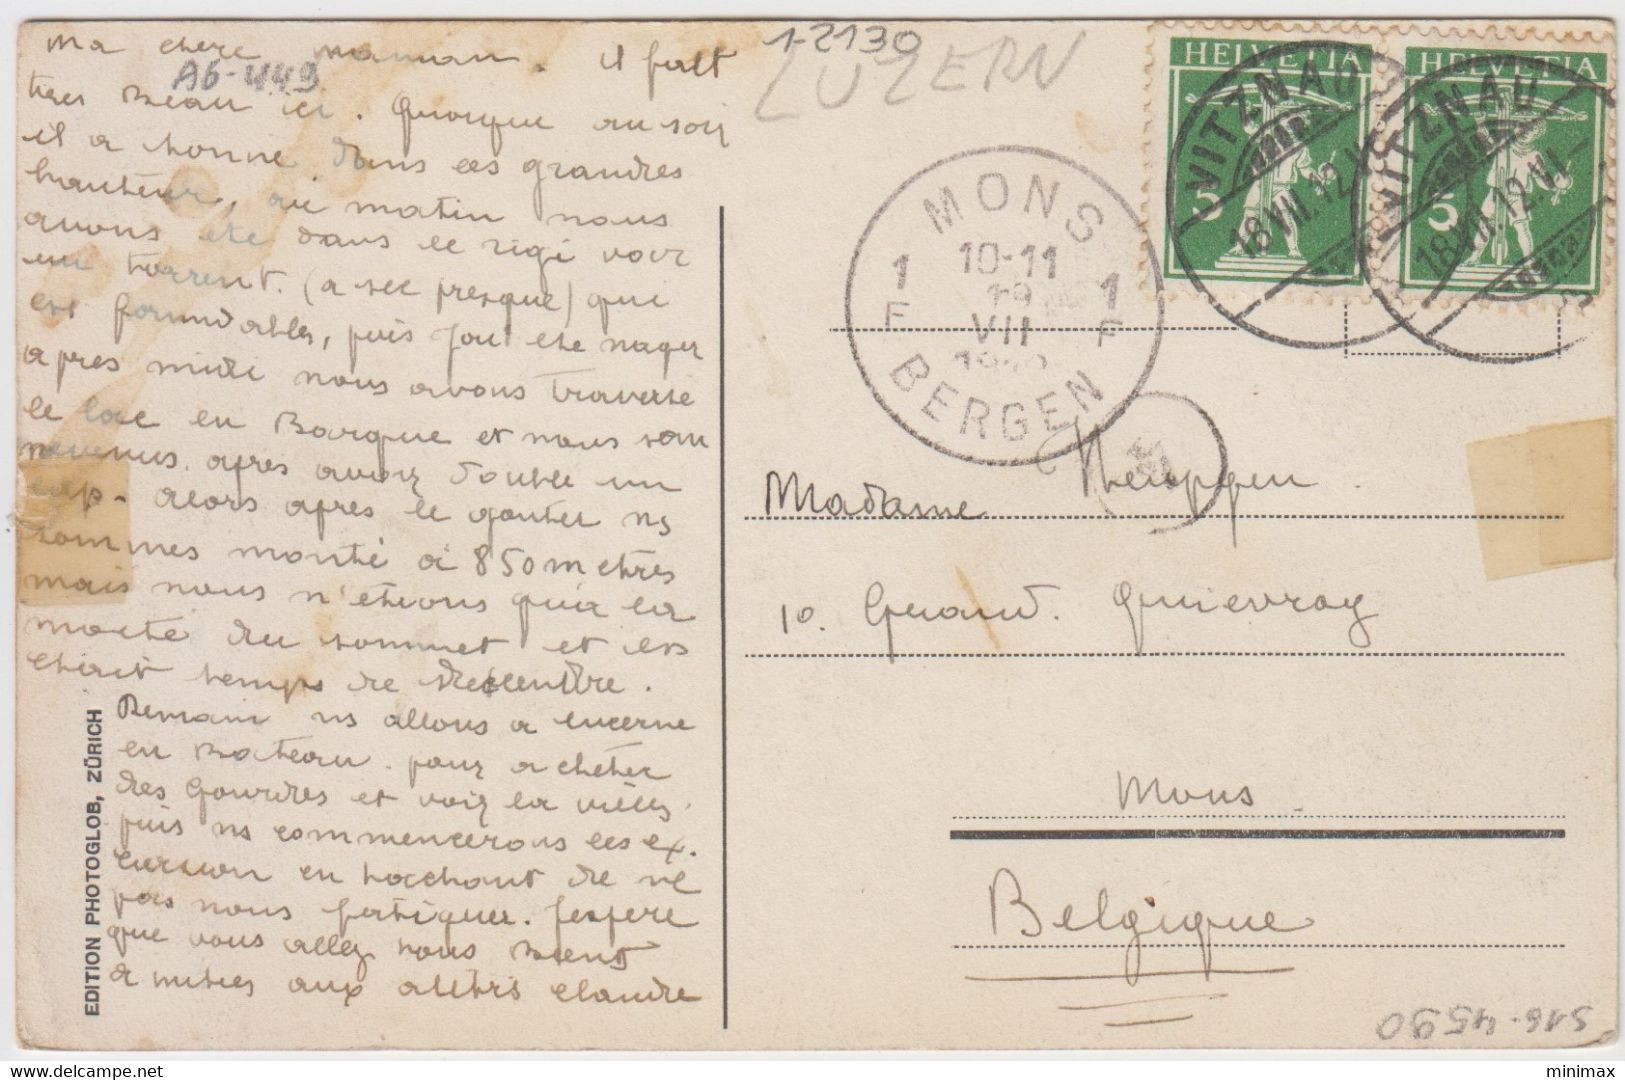 ma chere maman. il fait
tres Beau ici. Quoique au soir
il a tonné dans les grandes
hauteur, au matin nous
avons ete dans le rigi voir
un torrent. (a sec presque) qui
est formidables, puis j'ai ete nager
apres midi nous avons traversé
le lac en Barque et nous som
revenus. après avoir doublé un
cap. alors apres le gouter ns
sommes monté à 850 metres
mais nous n'etions qu'a la
moitié du sommet et
etait temps de descendre.
Demain ns allons a lucerne
en Bateau. pour acheter
des Gourdes et voir la ville,
puis ns commencerons les ex.
cursion en tachant de ne
pas nous fatiguer. J'espere
que vous allez tous Biens
amities aux autres claudre
EDITION PHOTOGLOB, ZÜRICH
A6-449
1-2130
LUZERN
HELVETIA
5
HELVETIA
5
VITZNAU
18.VII.12.VI
VITZNAU
18.VII.12.VI-
MONS
10-11
1 F
19
VII
1 F
BERGEN
Madame
10. Grand. Quievroy
Mons
Belgique
S16-4590
minimax